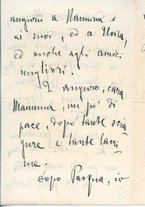 auguroni a Mammà e
ai suoi, ed a Nora,
ed anche agli amici
migliori.
T'auguro, cara
Mammina, un po' di
pace, dopo tante scia
gure e tante lacri
me.
Dopo Pasqua, io